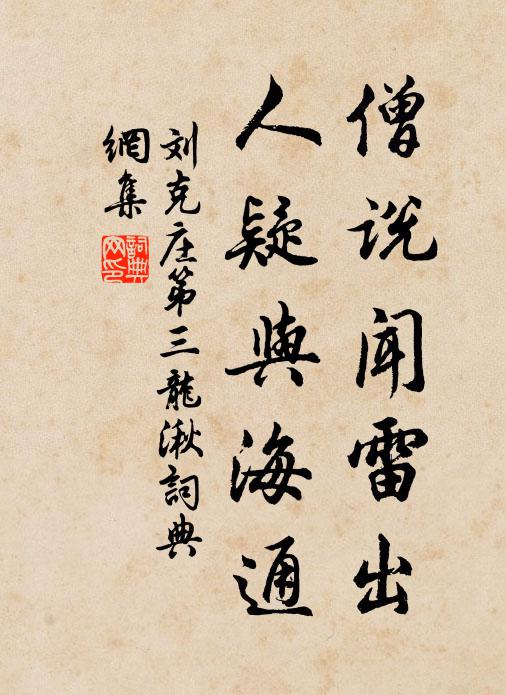 僧说闻雷出
人疑與海通
刘克庄第三龍湫詞典
網集
詞典
网印